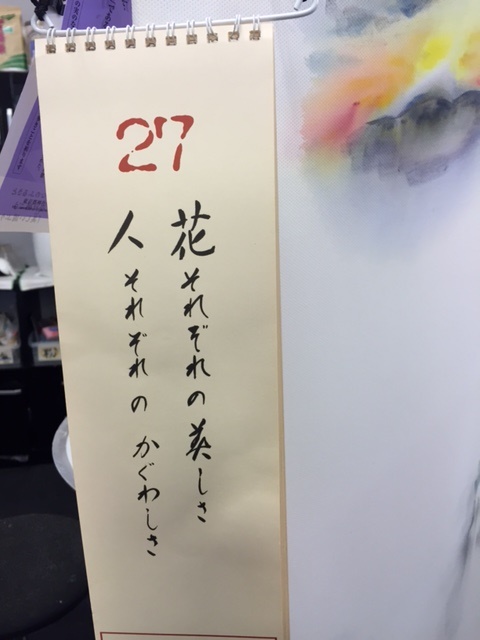 27
花それぞれの美しさ
人それぞれの かぐわしさ